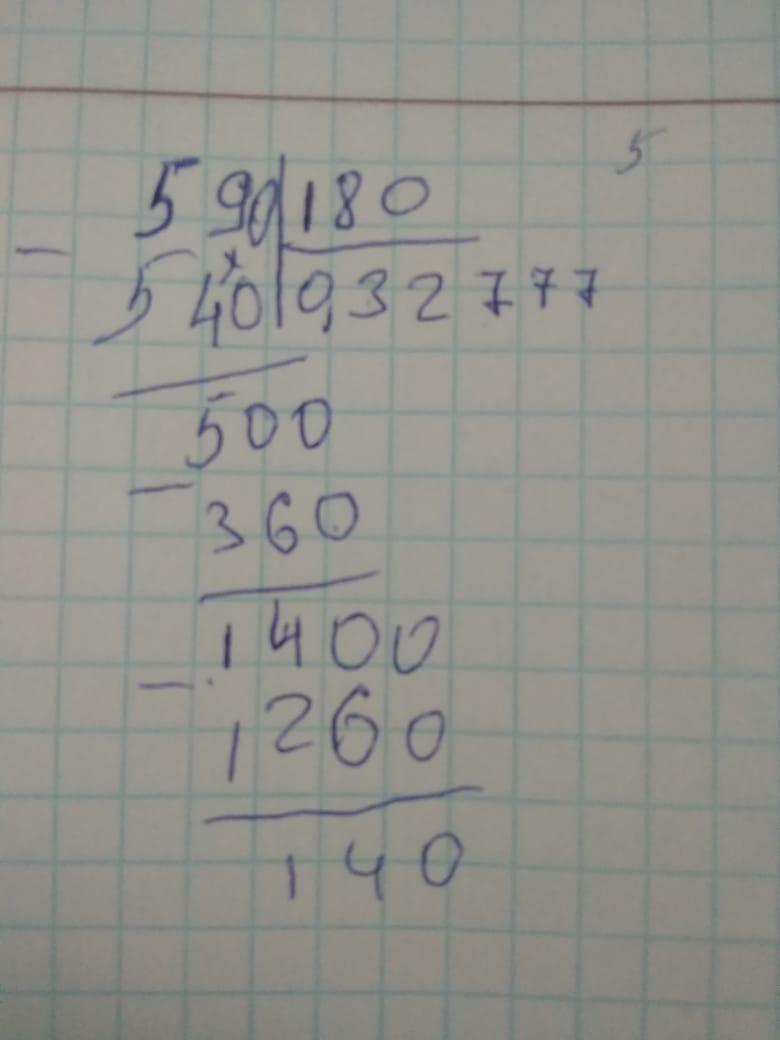 5
590 180
- 540 0,32777
500
- 360
1400
- 1260
140